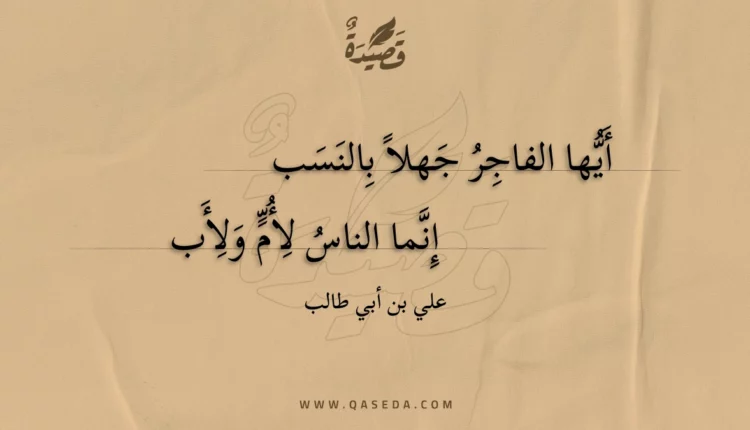 قَصِيدَةٌ
أَيُّها الفاجِرُ جَهلاً بِالنَسَب
إِنَّما الناسُ لِأُمٍّ وَلِأَب
علي بن أبي طالب
WWW.QASEDA.COM